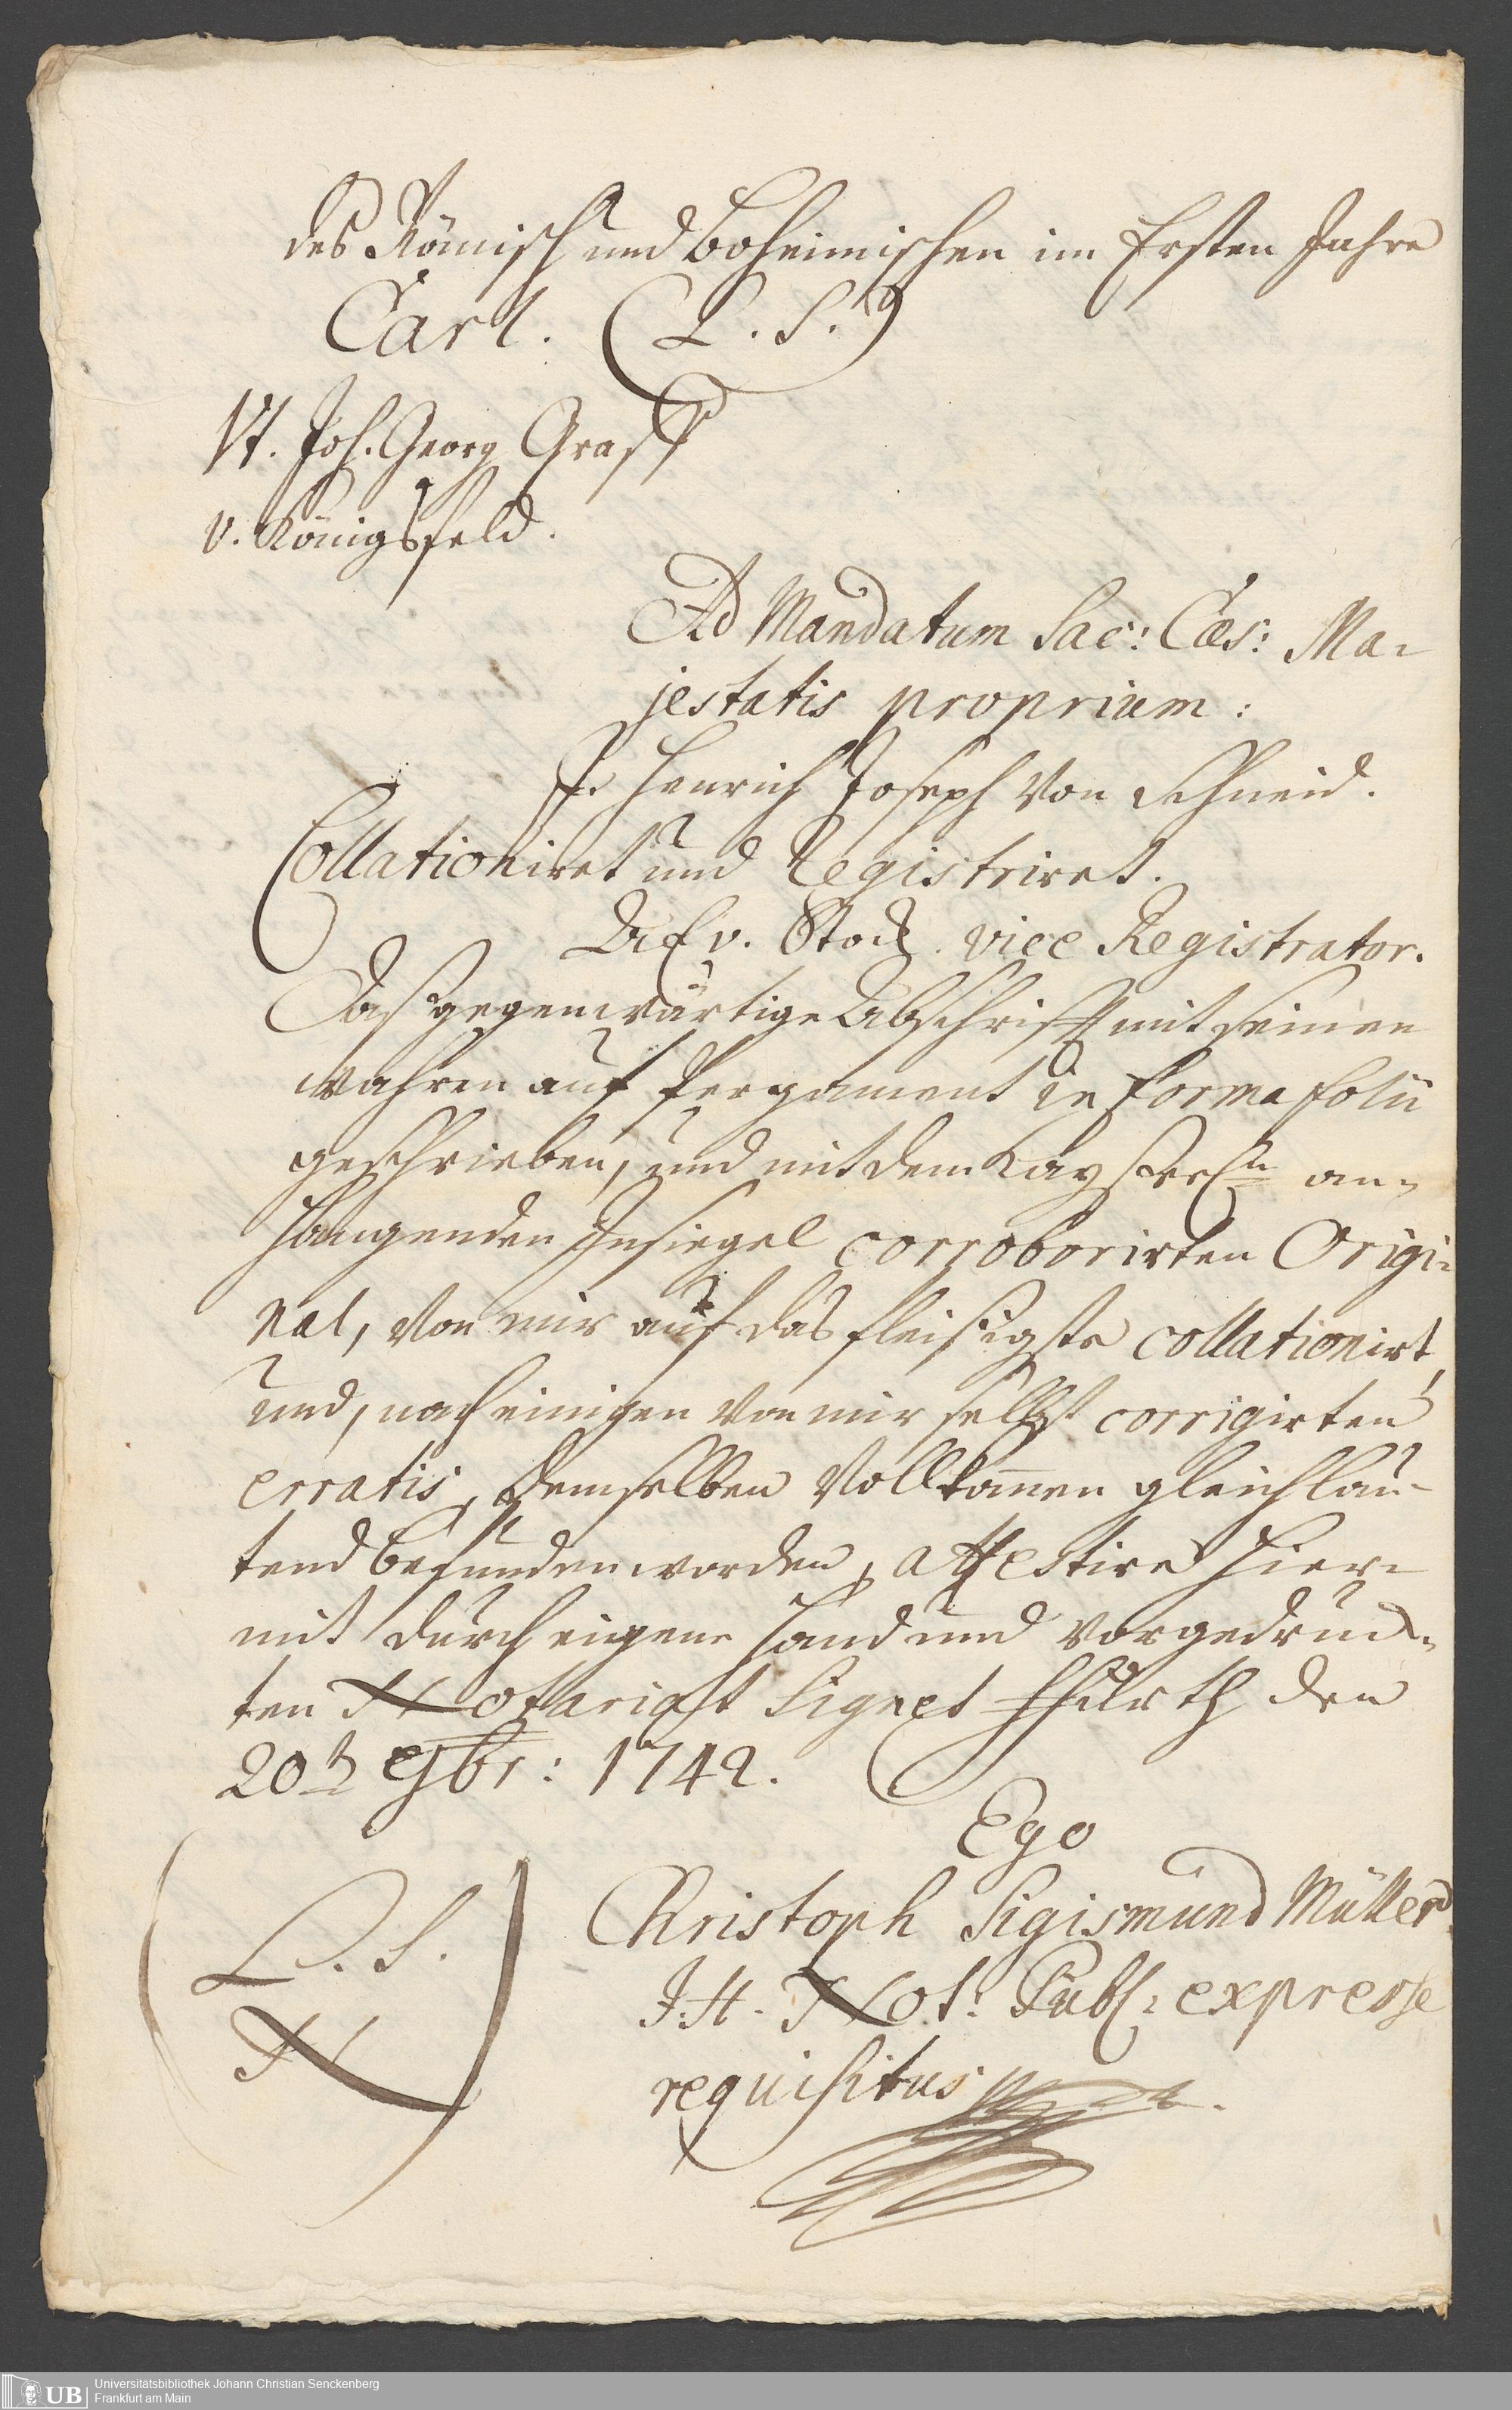 des Römisch und Boheimischen im Ersten Jahre
Carl. (L. S.)
Vt. Joh. Georg Graff
v. Königsfeld.
Ad Mandatum Sac: Cæs: Ma-
jestatis proprium:
Henrich Joseph von Schneid.
Collationiret und Registriret.
v. Stock. vice Registrator.
Daß gegenwärtige Abschrifft mit seinen
wahren auf Pergament in forma folii
geschrieben, und mit dem Kayserln an-
hangenden Insiegel corroborirten Origi-
nal, von mir auf das fleisigste collationirt,
und, nach einigen von mir selbst corrigirten
erratis, demselben Vollkom̄en gleichlau-
tend befunden worden, attestire hier-
mit durch eigene Hand und vorgedruck-
ten Notariat Signet Ffurth den
20ten 9br: 1742.
Ego
Christoph Sigismund Müller
Not: Publ: expresse
requisitus
L. S.
N
Universitätsbibliothek Johann Christian Senckenberg
Frankfurt am Main
UB